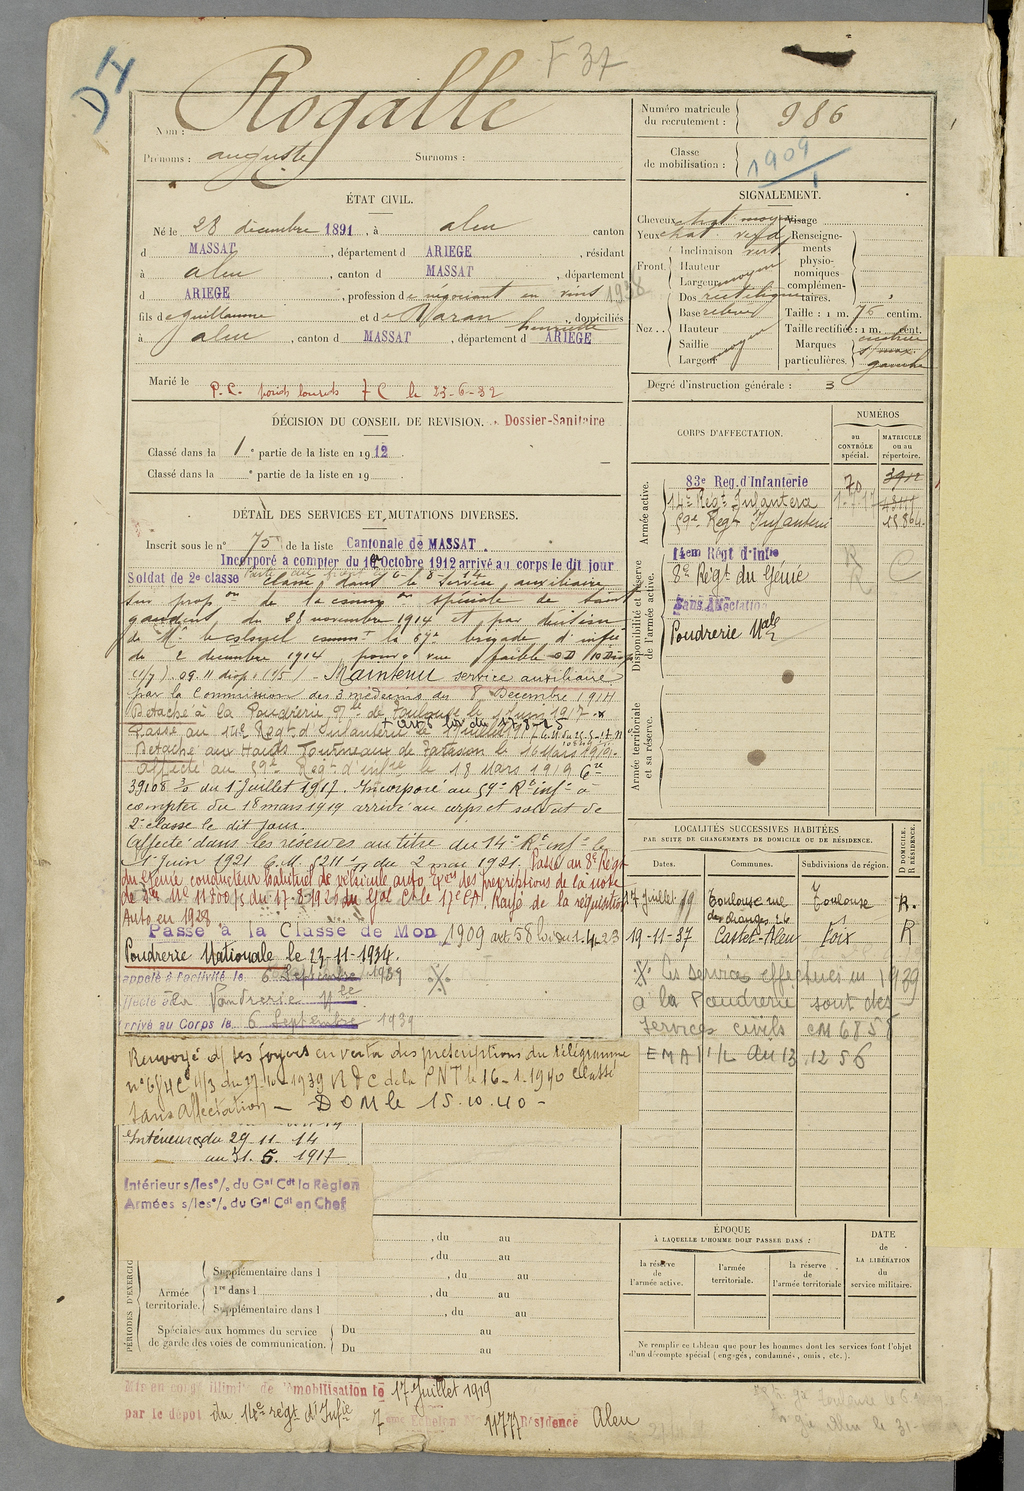 D4
F 37
Nom : Rogalle
Prénoms : auguste Surnoms :
Numéro matricule du recrutement : 986
Classe de mobilisation : 1909
ÉTAT CIVIL.
Né le 28 décembre 1891, à aleu canton
d MASSAT, département d ARIEGE, résidant
à aleu, canton d MASSAT, département
d ARIEGE, profession de négociant en vins 1938
fils de guillaume et de Naran henriette domiciliés
à aleu, canton d MASSAT, département d ARIEGE
Marié le
P.C. poids lourds 7 C le 25-6-32
SIGNALEMENT.
Cheveux chat. moy Visage
Yeux chat. verd. Renseigne-
Front. Inclinaison vert. ments
Hauteur physio-
Largeur moyen nomiques
Dos rectiligne complémen-
taires.
Nez . . Base relevée Taille : 1 m. 75 centim.
Hauteur Taille rectifiée : 1 m. cent.
Saillie Marques
Largeur moyen particulières. gauche
Degré d'instruction générale : 3
DÉCISION DU CONSEIL DE REVISION. Dossier-Sanitaire
Classé dans la 1e partie de la liste en 1912
Classé dans la e partie de la liste en 19
DÉTAIL DES SERVICES ET MUTATIONS DIVERSES.
Inscrit sous le n° 75 de la liste Cantonale de MASSAT
Incorporé a compter du 10 Octobre 1912 arrivé au corps le dit jour
Soldat de 2e classe Classé dans le service auxiliaire
sur propon de la common spéciale de Saint
gaudens du 28 novembre 1914 et par décision
de Mr le colonel commt la 67e brigade d'infie
du 2 décembre 1914 pour vue faible
Maintenu service auxiliaire
par la Commission des 3 médecins du 8 Décembre 1914
Détaché à la Poudrerie Nle de Toulouse le 1 Juin 1917
+ art 5 loi du 17-8-15
Passé au 14e Régt d'Infanterie le 1 juillet 1917
Détaché aux Hauts Fourneaux de le 16 Mars 1919
affecté au 59e Régt d'infie le 18 Mars 1919
39108 3/5 du 1 Juillet 1917. Incorporé au 59e Rt infie à
compter du 18 mars 1919 arrivé au corps et soldat de
2e classe le dit jour.
affecté dans les réserves au titre du 14e Rt infie le
1 Juin 1921 C.M. 5211 du 2 mai 1921. Passé au 8e Régt
du Génie conducteur habituel de véhicule auto. Exon des prescriptions de la note
de No 11800/3 du 17-8-1926 du Gal Ct le 17e CA. Rayé de la réquisition
Auto en 1928
Passé à la Classe de Mon 1909 art 58 loi du 1-4-23
Poudrerie Nationale le 23-11-1934.
appelé à l'activité le 6 Septembre 1939
affecté à la Poudrerie Nle
arrivé au Corps le 6 Septembre 1939
Renvoyé ds ses foyers en vertu des prescriptions du télégramme
no 6/4C 1/3 du 27-10-1939 RDC de la PNT le 16-1-1940 classé
sans affectation - DOM le 15.10.40 -
Intérieur du 29-11-14
au 31.5.1917
Intérieur s/les o/. du Gal Cdt la Région
Armées s/les o/. du Gal Cdt en Chef
CORPS D'AFFECTATION.
NUMÉROS
au CONTRÔLE spécial.
MATRICULE ou au répertoire.
Armée active.
83e Reg. d'Infanterie 70
14e Régt Infanterie
59e Régt Infanterie
Disponibilité et réserve de l'armée active.
14em Régt d'Infie R
8e Régt du Génie R C
Sans Affectation
Poudrerie Nale
Armée territoriale et sa réserve.
LOCALITÉS SUCCESSIVES HABITÉES
PAR SUITE DE CHANGEMENTS DE DOMICILE OU DE RÉSIDENCE.
Dates. Communes. Subdivisions de région. D DOMICILE. R RÉSIDENCE.
17 juillet 19 Toulouse rue des changes 26 Toulouse R.
19-11-37 Castet-Aleu Foix R
Les services effectués en 1939
à la Poudrerie sont des
services civils CM 6858
EMA 1/L du 13.12 56
ÉPOQUE
À LAQUELLE L'HOMME DOIT PASSER DANS :
la réserve de l'armée active.
l'armée territoriale.
la réserve de l'armée territoriale
DATE de LA LIBÉRATION du service militaire.
Ne remplir ce tableau que pour les hommes dont les services font l'objet
d'un décompte spécial (engagés, condamnés, omis, etc.).
PÉRIODES D'EXERCICE
, du au
, du au
Supplémentaire dans l , du au
Armée territoriale. 1re dans l , du au
Supplémentaire dans l , du au
Spéciales aux hommes du service
de garde des voies de communication. Du au
Du au
Mis en congé illimité de démobilisation le 17 Juillet 1919
par le dépôt du 14e régt d'Infie 7 eme Echelon No 11777 Résidence Aleu